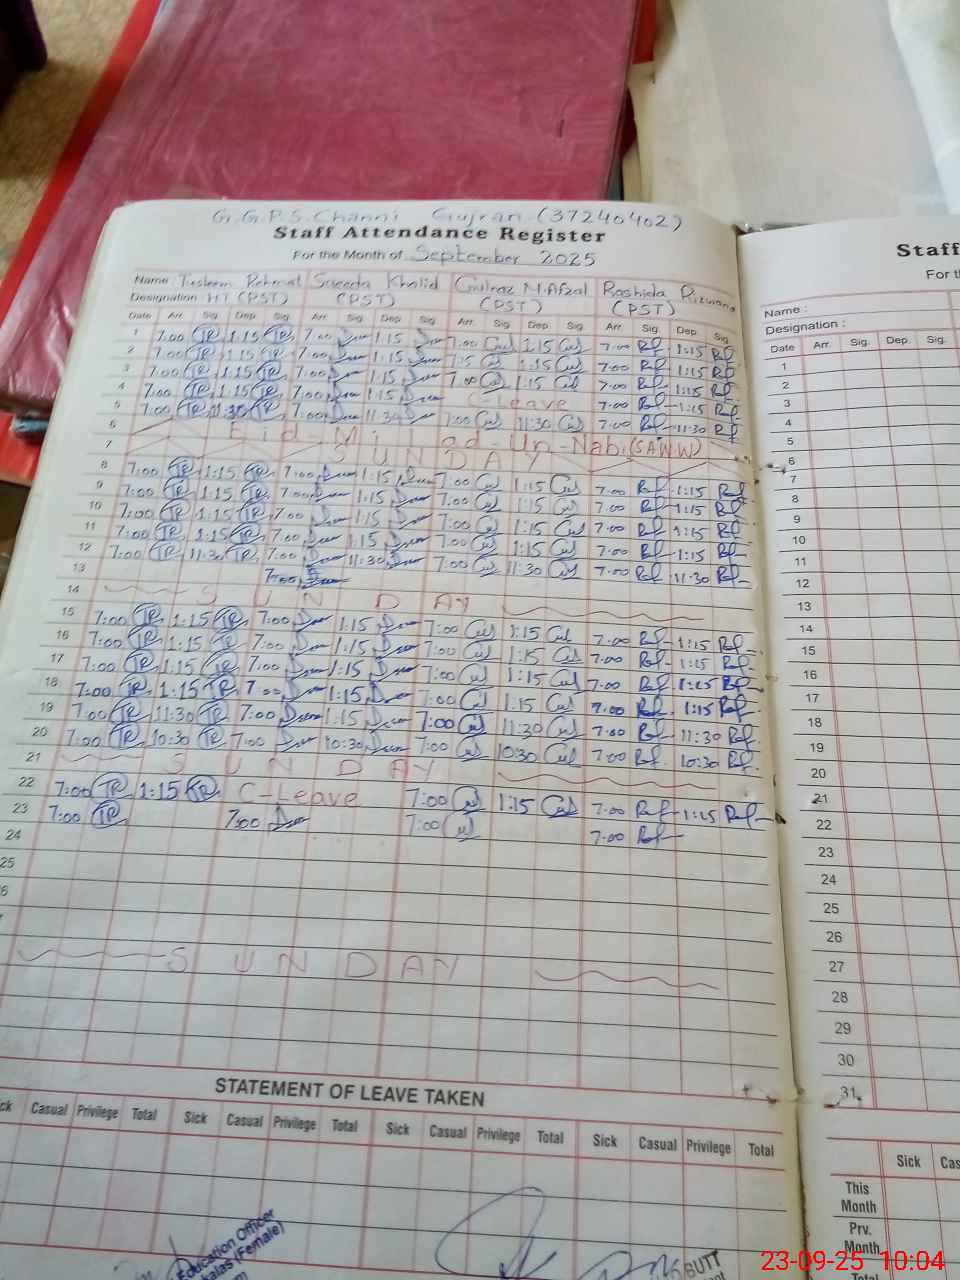 G.G.P.S. Channi Gujran (37240402)
Staff Attendance Register
For the Month of September 2025
Name Tasleem Rehmat Saeeda Khalid Gulnaz M.Afzal Rashida Rizwana
Designation HT (PST) (PST) (PST) (PST)
Date Arr. Sig. Dep. Sig. Arr. Sig. Dep. Sig. Arr. Sig. Dep. Sig. Arr. Sig. Dep. Sig.
1 7:00 TR 1:15 TR 7:00 1:15 7:00 1:15 7:00 1:15
2 7:00 TR 1:15 TR 7:00 1:15 1:15 7:00 1:15
3 7:00 TR 1:15 TR 7:00 1:15 7:00 1:15 7:00 1:15
4 7:00 TR 1:15 TR 7:00 1:15 C-Leave 7:00 1:15
5 7:00 TR 11:30 TR 7:00 11:30 7:00 11:30 7:00 11:30
6 Eid-Millad-Un-Nabi (SAWW)
7 SUNDAY
8 7:00 TR 1:15 TR 7:00 1:15 7:00 1:15 7:00 1:15
9 7:00 TR 1:15 TR 7:00 1:15 7:00 1:15 7:00 1:15
10 7:00 TR 1:15 TR 7:00 1:15 7:00 1:15 7:00 1:15
11 7:00 TR 1:15 TR 7:00 1:15 7:00 1:15 7:00 1:15
12 7:00 TR 11:30 TR 7:00 11:30 7:00 11:30 7:00 11:30
13 7:00
14 SUNDAY
15 7:00 TR 1:15 TR 7:00 1:15 7:00 1:15 7:00 1:15
16 7:00 TR 1:15 TR 7:00 1:15 7:00 1:15 7:00 1:15
17 7:00 TR 1:15 TR 7:00 1:15 7:00 1:15 7:00 1:15
18 7:00 TR 1:15 TR 7:00 1:15 7:00 1:15 7:00 1:15
19 7:00 TR 11:30 TR 7:00 1:15 7:00 11:30 7:00 11:30
20 7:00 TR 10:30 TR 7:00 10:30 7:00 10:30 7:00 10:30
21 SUNDAY
22 7:00 TR 1:15 TR C-Leave 7:00 1:15 7:00 1:15
23 7:00 TR 7:00 7:00 7:00
24
25
SUNDAY
STATEMENT OF LEAVE TAKEN
Casual Privilege Total Sick Casual Privilege Total Sick Casual Privilege Total Sick Casual Privilege Total
Education Officer
(Female)
BUTT
Staff
Name :
Designation :
Date Arr. Sig. Dep. Sig.
1
2
3
4
5
6
7
8
9
10
11
12
13
14
15
16
17
18
19
20
21
22
23
24
25
26
27
28
29
30
31
Sick
This
Month
Prv.
Month
Total
23-09-25 10:04